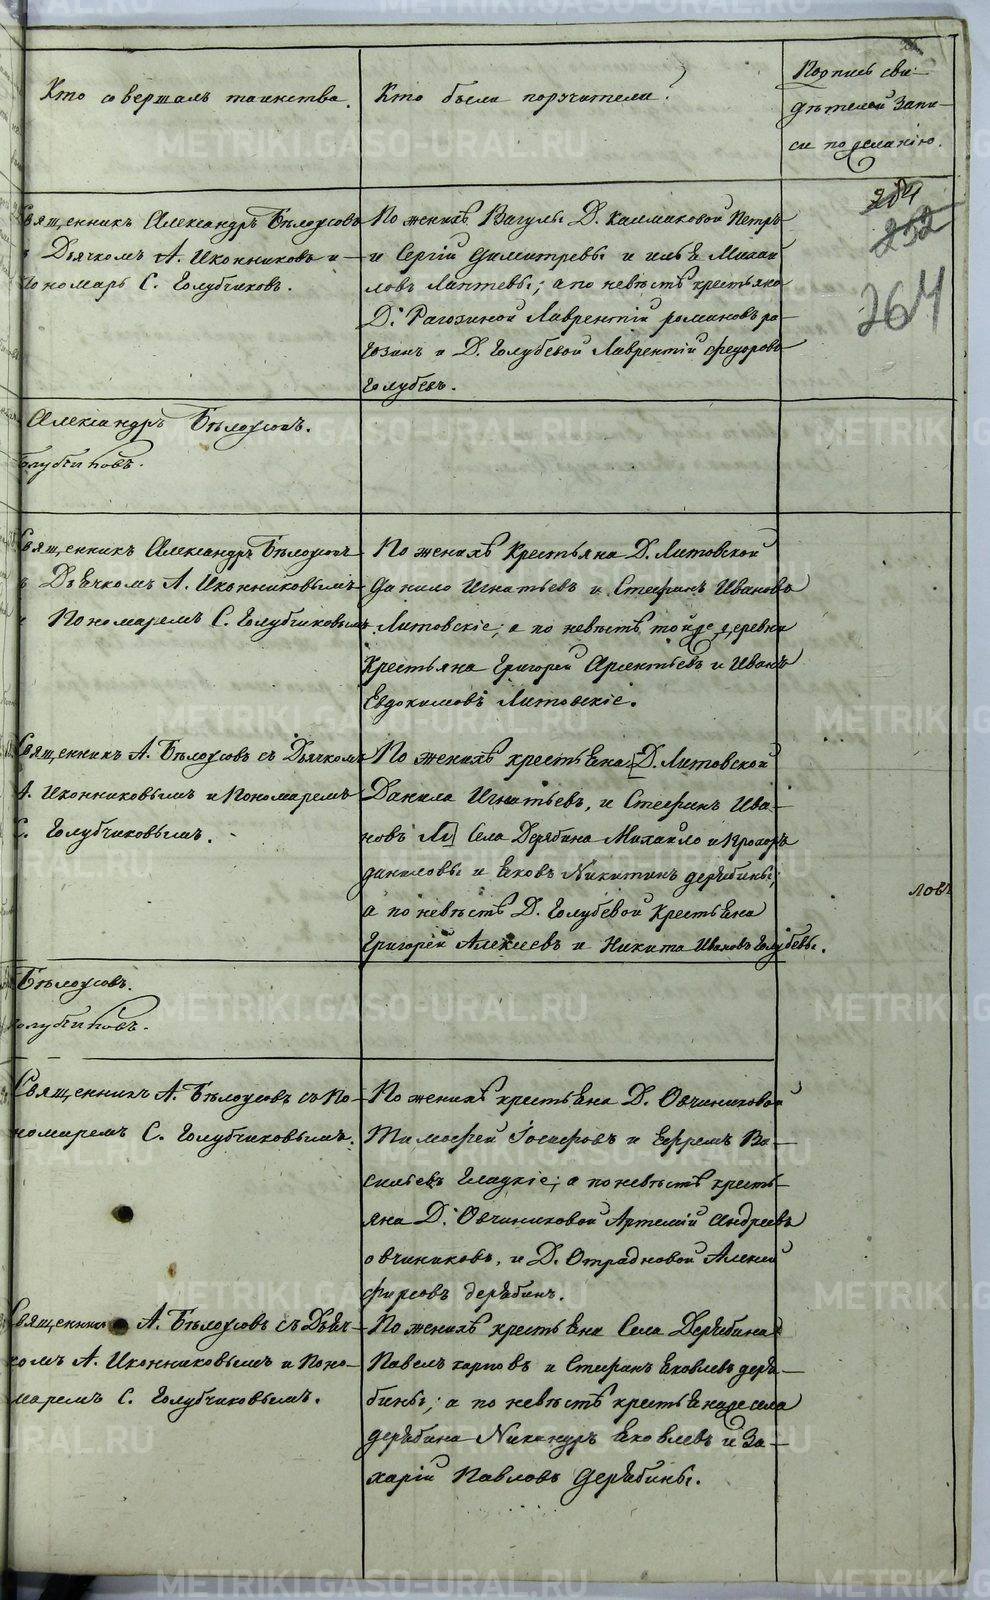 Кто совершалъ таинства.
Кто были поручители?
Подпись сви-
дѣтелей запи-
си по желанію.
204
252
264
Священникъ Александръ Бѣлоусовъ
Дьячкомъ А. Иконниковъ и
Пономарь С. Голубчиковъ.
По женихѣ Вагулы Д. Калмаковой Петръ
и Сергій Димитревы и илья Михаи
ловъ Лаптевы; а по невѣстѣ крестьяна
Д. Рагозиной Лаврентій романовъ ра-
гозинъ и Д. Голубевой Лаврентій Федоровъ
Голубевъ.
Александръ Бѣлоусовъ.
Голубчиковъ.
Священникъ Александръ Бѣлоусовъ
съ Дьячкомъ А. Иконниковымъ
и Пономаремъ С. Голубчиковымъ
По женихѣ Крестьяна Д. Литовской
Данило Игнатьевъ и Стефанъ Ивановъ
Литовскіе; а по невѣстѣ тойже деревни
Крестьяна Григорей Арсентьевъ и Иванъ
Евдокимовъ Литовскіе.
Священникъ А. Бѣлоусовъ съ Дьячкомъ
А. Иконниковымъ и Пономаремъ
С. Голубчиковымъ.
По женихѣ крестьяна [Д. Литовской
Данила Игнатьевъ, и Стефанъ Ива-
новъ Ли] Села Дерябина Михайло и Прохоръ
даниловы и Яковъ Никитинъ дерябины;
а по невѣстѣ Д. Голубевой Крестьяна
Григорей Алексѣевъ и Никита Ивановъ Голубевы.
ловъ
Бѣлоусовъ.
Голубчиковъ.
Священникъ А. Бѣлоусовъ съ По-
номаремъ С. Голубчиковымъ.
По женихѣ крестьяна Д. Овчиниковой
Тимофей Іосифовъ и Ефремъ Ва-
сильевъ Гладкіе; а по невѣстѣ кресть-
яна Д. Овчиниковой Артемій Андреевъ
овчиниковъ, и Д. Отрадновой Алексѣй
фирсовъ дерябинъ.
Священникъ А. Бѣлоусовъ съ Дьяч-
комъ А. Иконниковымъ и Поно-
маремъ С. Голубчиковымъ.
По женихѣ крестьяна Села Дерябина
Павелъ карповъ и Стефанъ Яковлевъ деря-
бины; а по невѣстѣ крестьяна же села
дерябина Никаноръ Яковлевъ и За-
харій Павловъ Дерябины.
METRIKI.GASO-URAL.RU